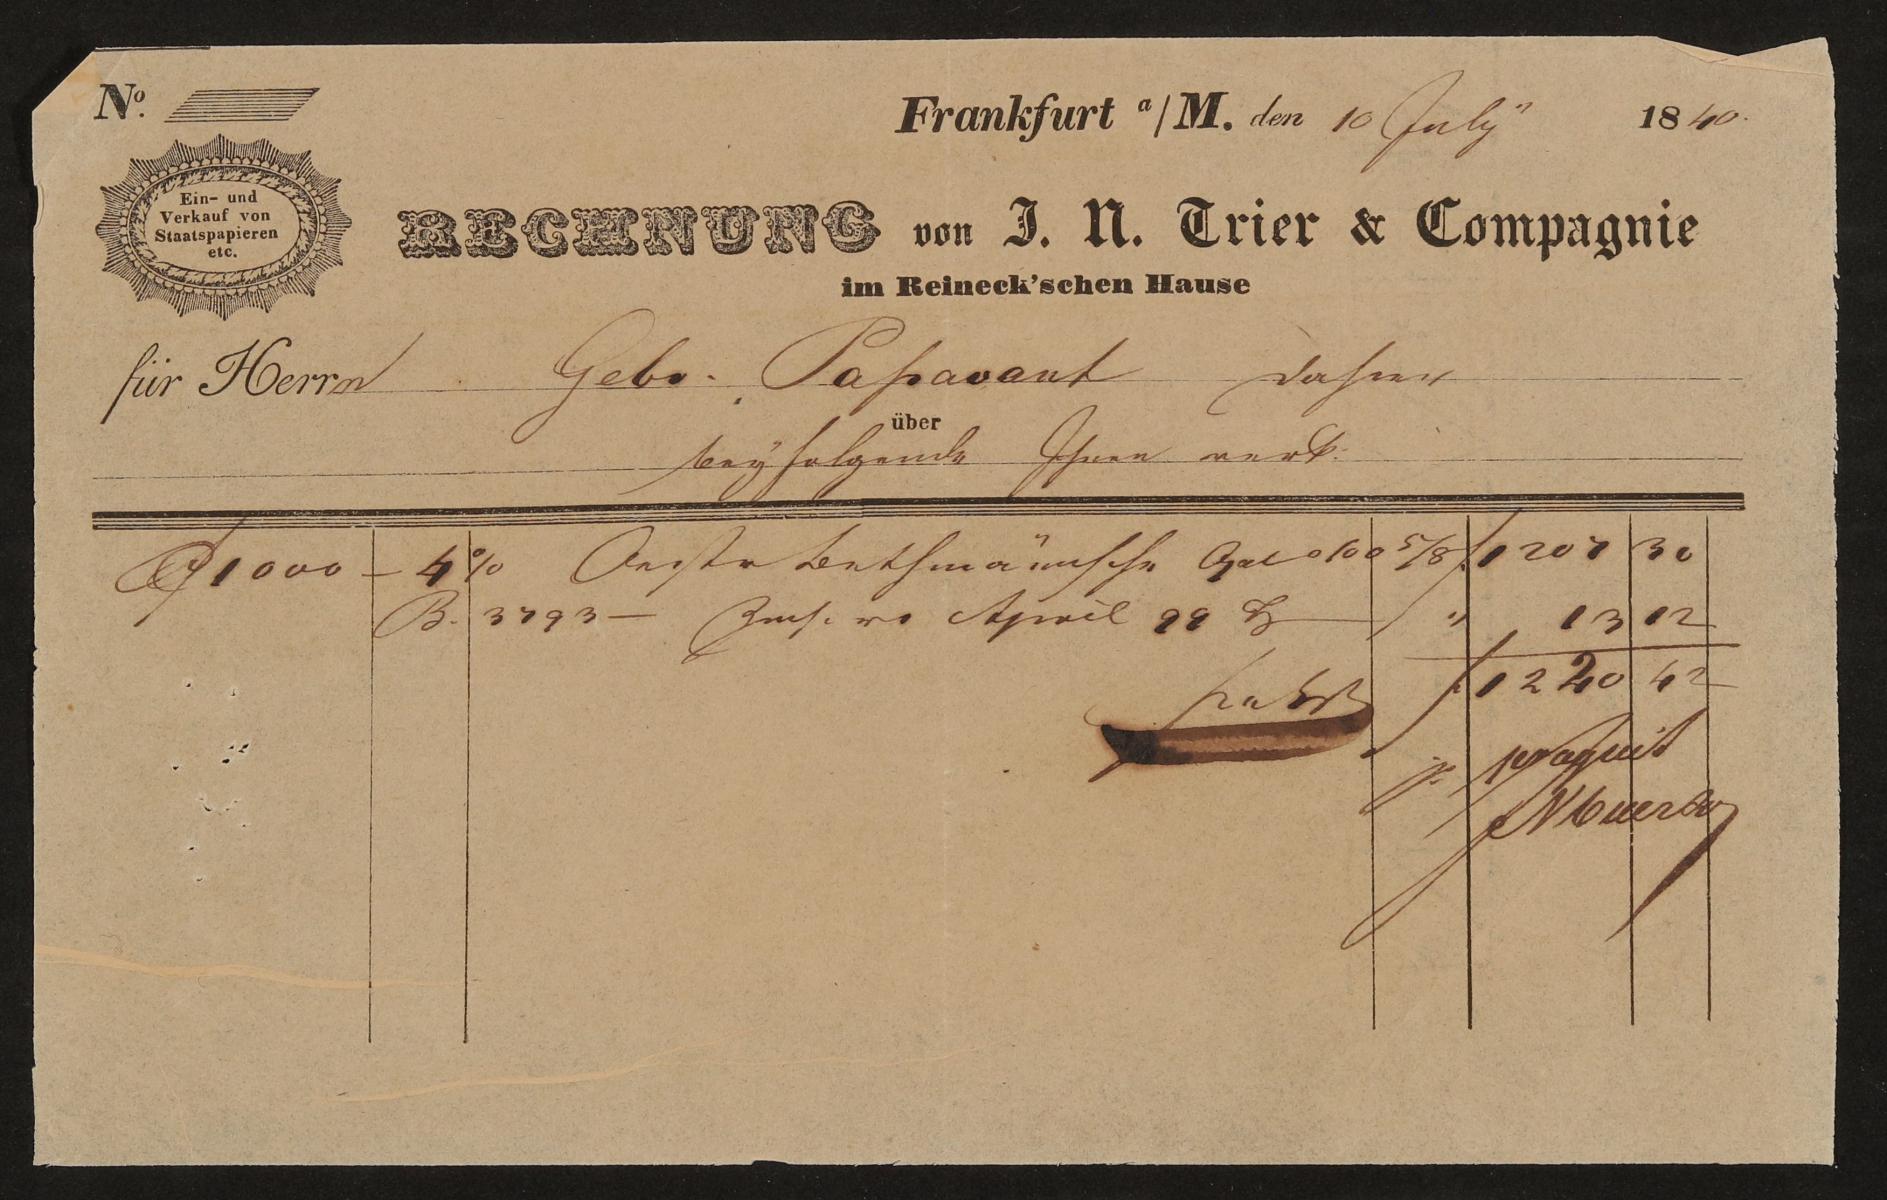 No.
Frankfurt a/M. den 10 July 1840.
Ein- und
Verkauf von
Staatspapieren
etc.
RECHNUNG von J. N. Trier & Compagnie
im Reineck'schen Hause
für Herrn Gebr. Paßavant dahier
über
beyfolgende Ihnen verk.
f 1000 – 4% Oestr. Bethmännische Obl. a 100 5/8 f 1207 30
B. 3793 – Zinß. v. 1 April 99 " 13 12
f 1220 42
pr acquit